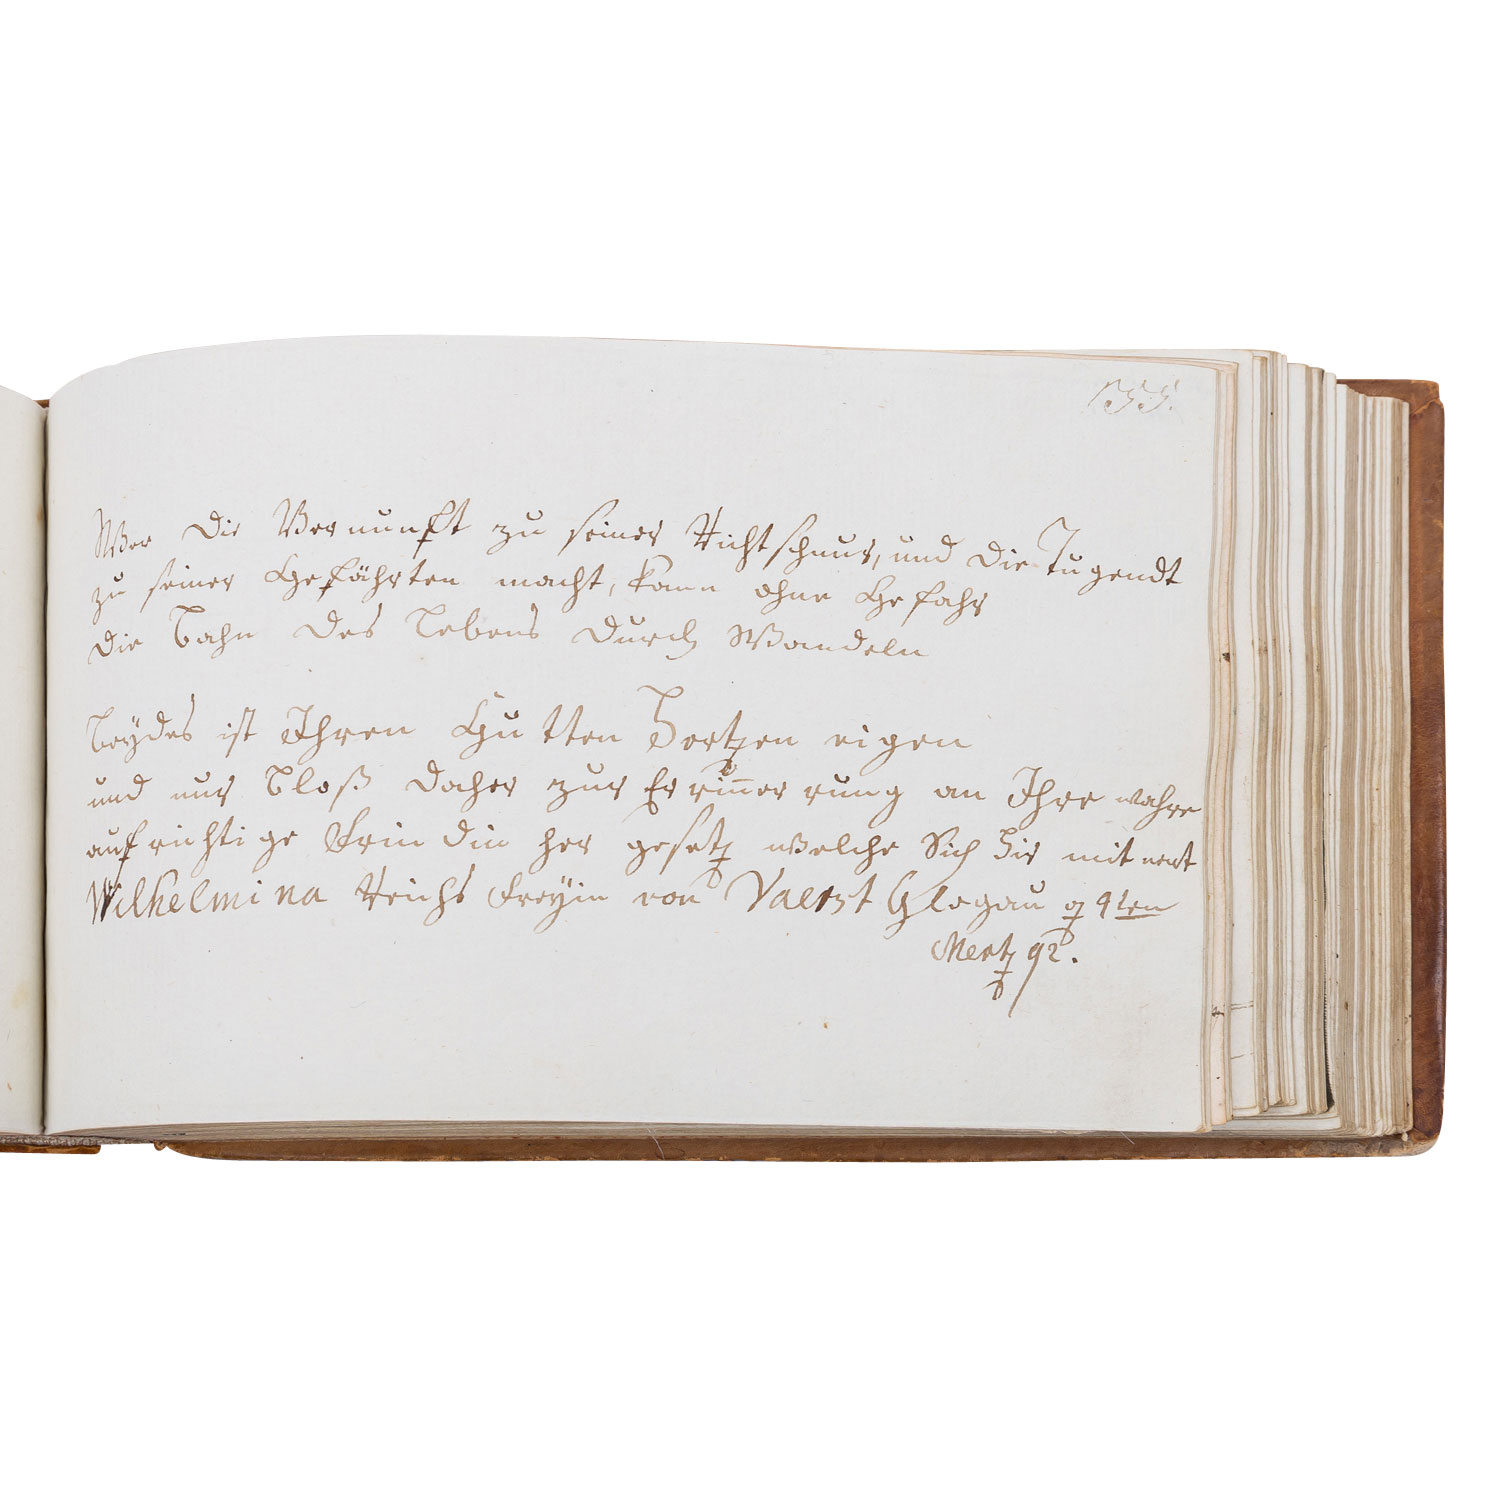 155.
Wer die Vernunft zu seiner Richtschnur, und die Tugendt
zu seiner Gefährten macht, kann ohne Gefahr
die Bahn des Lebens durch Wandeln
Beydes ist Ihren Gutten Hertzen eigen
und nur bloß daher zur Erinnerrung an Ihre wahre
aufrichtige Frindin her gesetz welche Sich Hir mit nent
Wilhelmina Reichs Freyin von Glogau 9ten
Mertz 92.